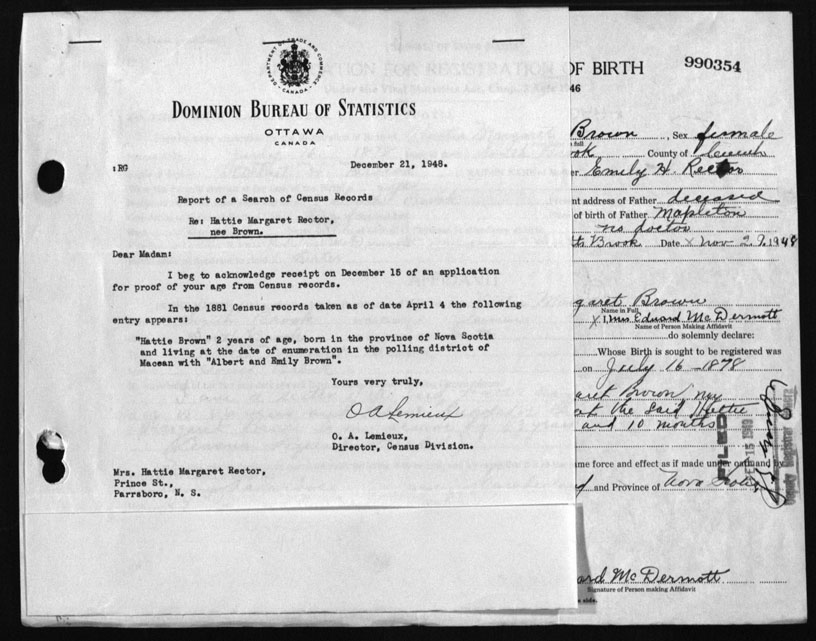 DEPARTMENT OF TRADE AND COMMERCE
CANADA
DOMINION BUREAU OF STATISTICS
OTTAWA
CANADA
:RG
December 21, 1948.
Report of a Search of Census Records
Re: Hattie Margaret Rector,
nee Brown.
Dear Madam:
I beg to acknowledge receipt on December 15 of an application
for proof of your age from Census records.
In the 1881 Census records taken as of date April 4 the following
entry appears:
"Hattie Brown" 2 years of age, born in the province of Nova Scotia
and living at the date of enumeration in the polling district of
Maccan with "Albert and Emily Brown".
Yours very truly,
O A Lemieux
O. A. Lemieux,
Director, Census Division.
Mrs. Hattie Margaret Rector,
Prince St.,
Parrsboro, N. S.
OF BIRTH
990354
46
Brown, Sex female
County of
Emily H.
nt address of Father deceased
of birth of Father Mapleton
no doctor
Brook Date Nov 29, 1948
garet Brown
Name in Full
X I, Mrs Edward McDermott
Name of Person Making Affidavit
do solemnly declare:
Whose Birth is sought to be registered was
on July 16 - 1878
aret Brown my
at the said Hattie
and 10 months
FILED
15 1949
me force and effect as if made under oath and by
and Province of Nova Scotia
ard McDermott
Signature of Person making Affidavit
side.